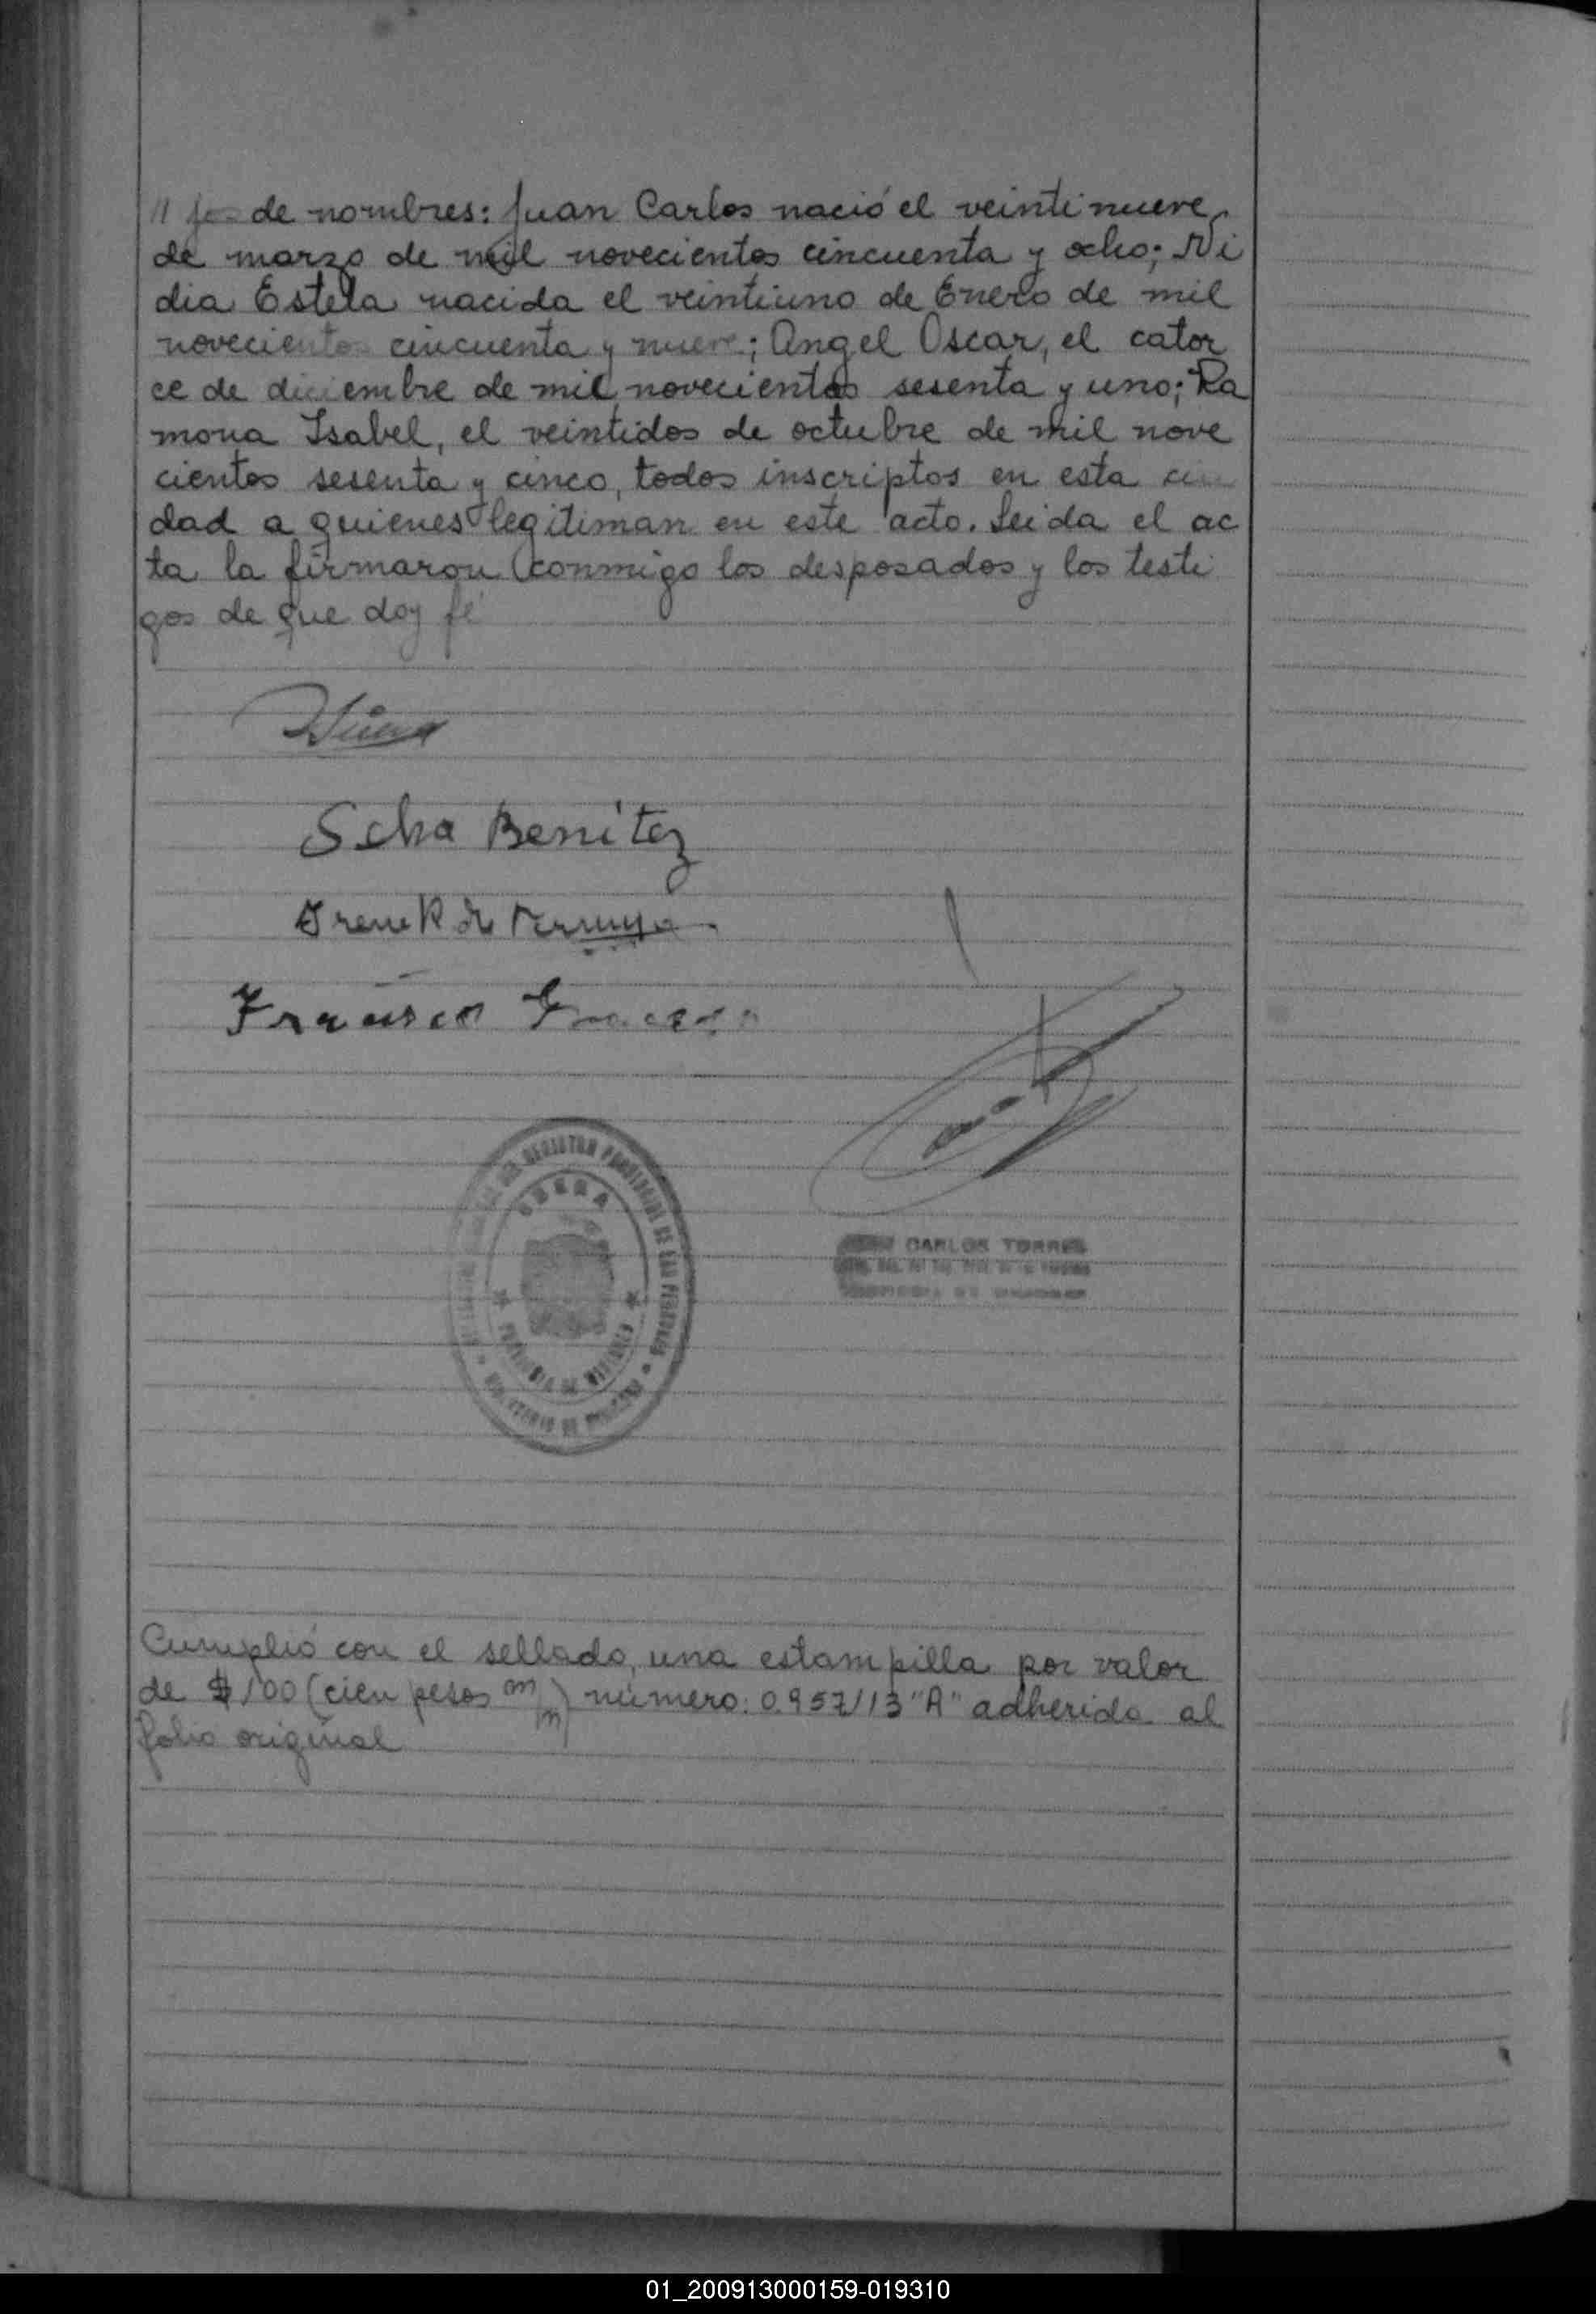 // jos de nombres: Juan Carlos nació el veintinueve
de marzo de mil novecientos cincuenta y ocho; Ni
dia Estela nacida el veintiuno de Enero de mil
novecientos cincuenta y nueve; Angel Oscar, el cator
ce de diciembre de mil novecientos sesenta y uno; Ra
mona Isabel, el veintidos de octubre de mil nove
cientos sesenta y cinco, todos inscriptos en esta ciu
dad a quienes legitiman en este acto. Leida el ac
ta la firmaron conmigo los desposados y los testi
gos de que doy fé
Benitez
Irene R de
Francisco
REGISTRO PROVINCIAL DE LAS PERSONAS
OBERA
PROVINCIA DE MISIONES
MINISTERIO DE
CARLOS TORRES
Cumplió con el sellado, una estampilla por valor
de $ 100 (cien pesos m/n) número: 0.957113 "A" adherida al
folio original
01_200913000159-019310